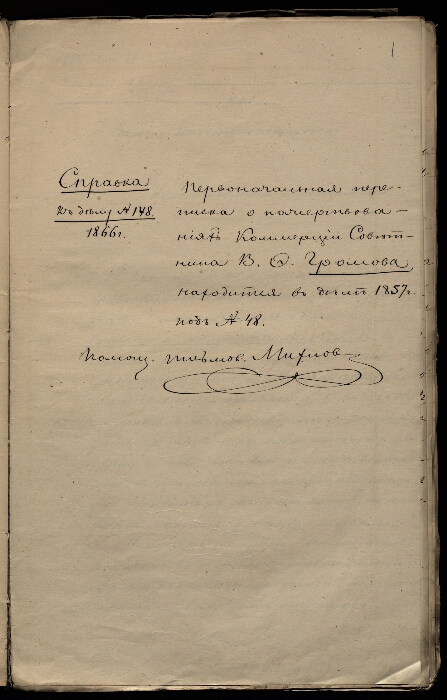 1
Справка
къ дѣлу № 148.
1866 г.
Первоначальная пере-
писка о пожертвова-
ніяхъ Коммерціи Совѣт-
ника В. Ѳ. Громова
находится въ дѣлѣ 1857 г.
подъ № 48.
Помощ. письмов.